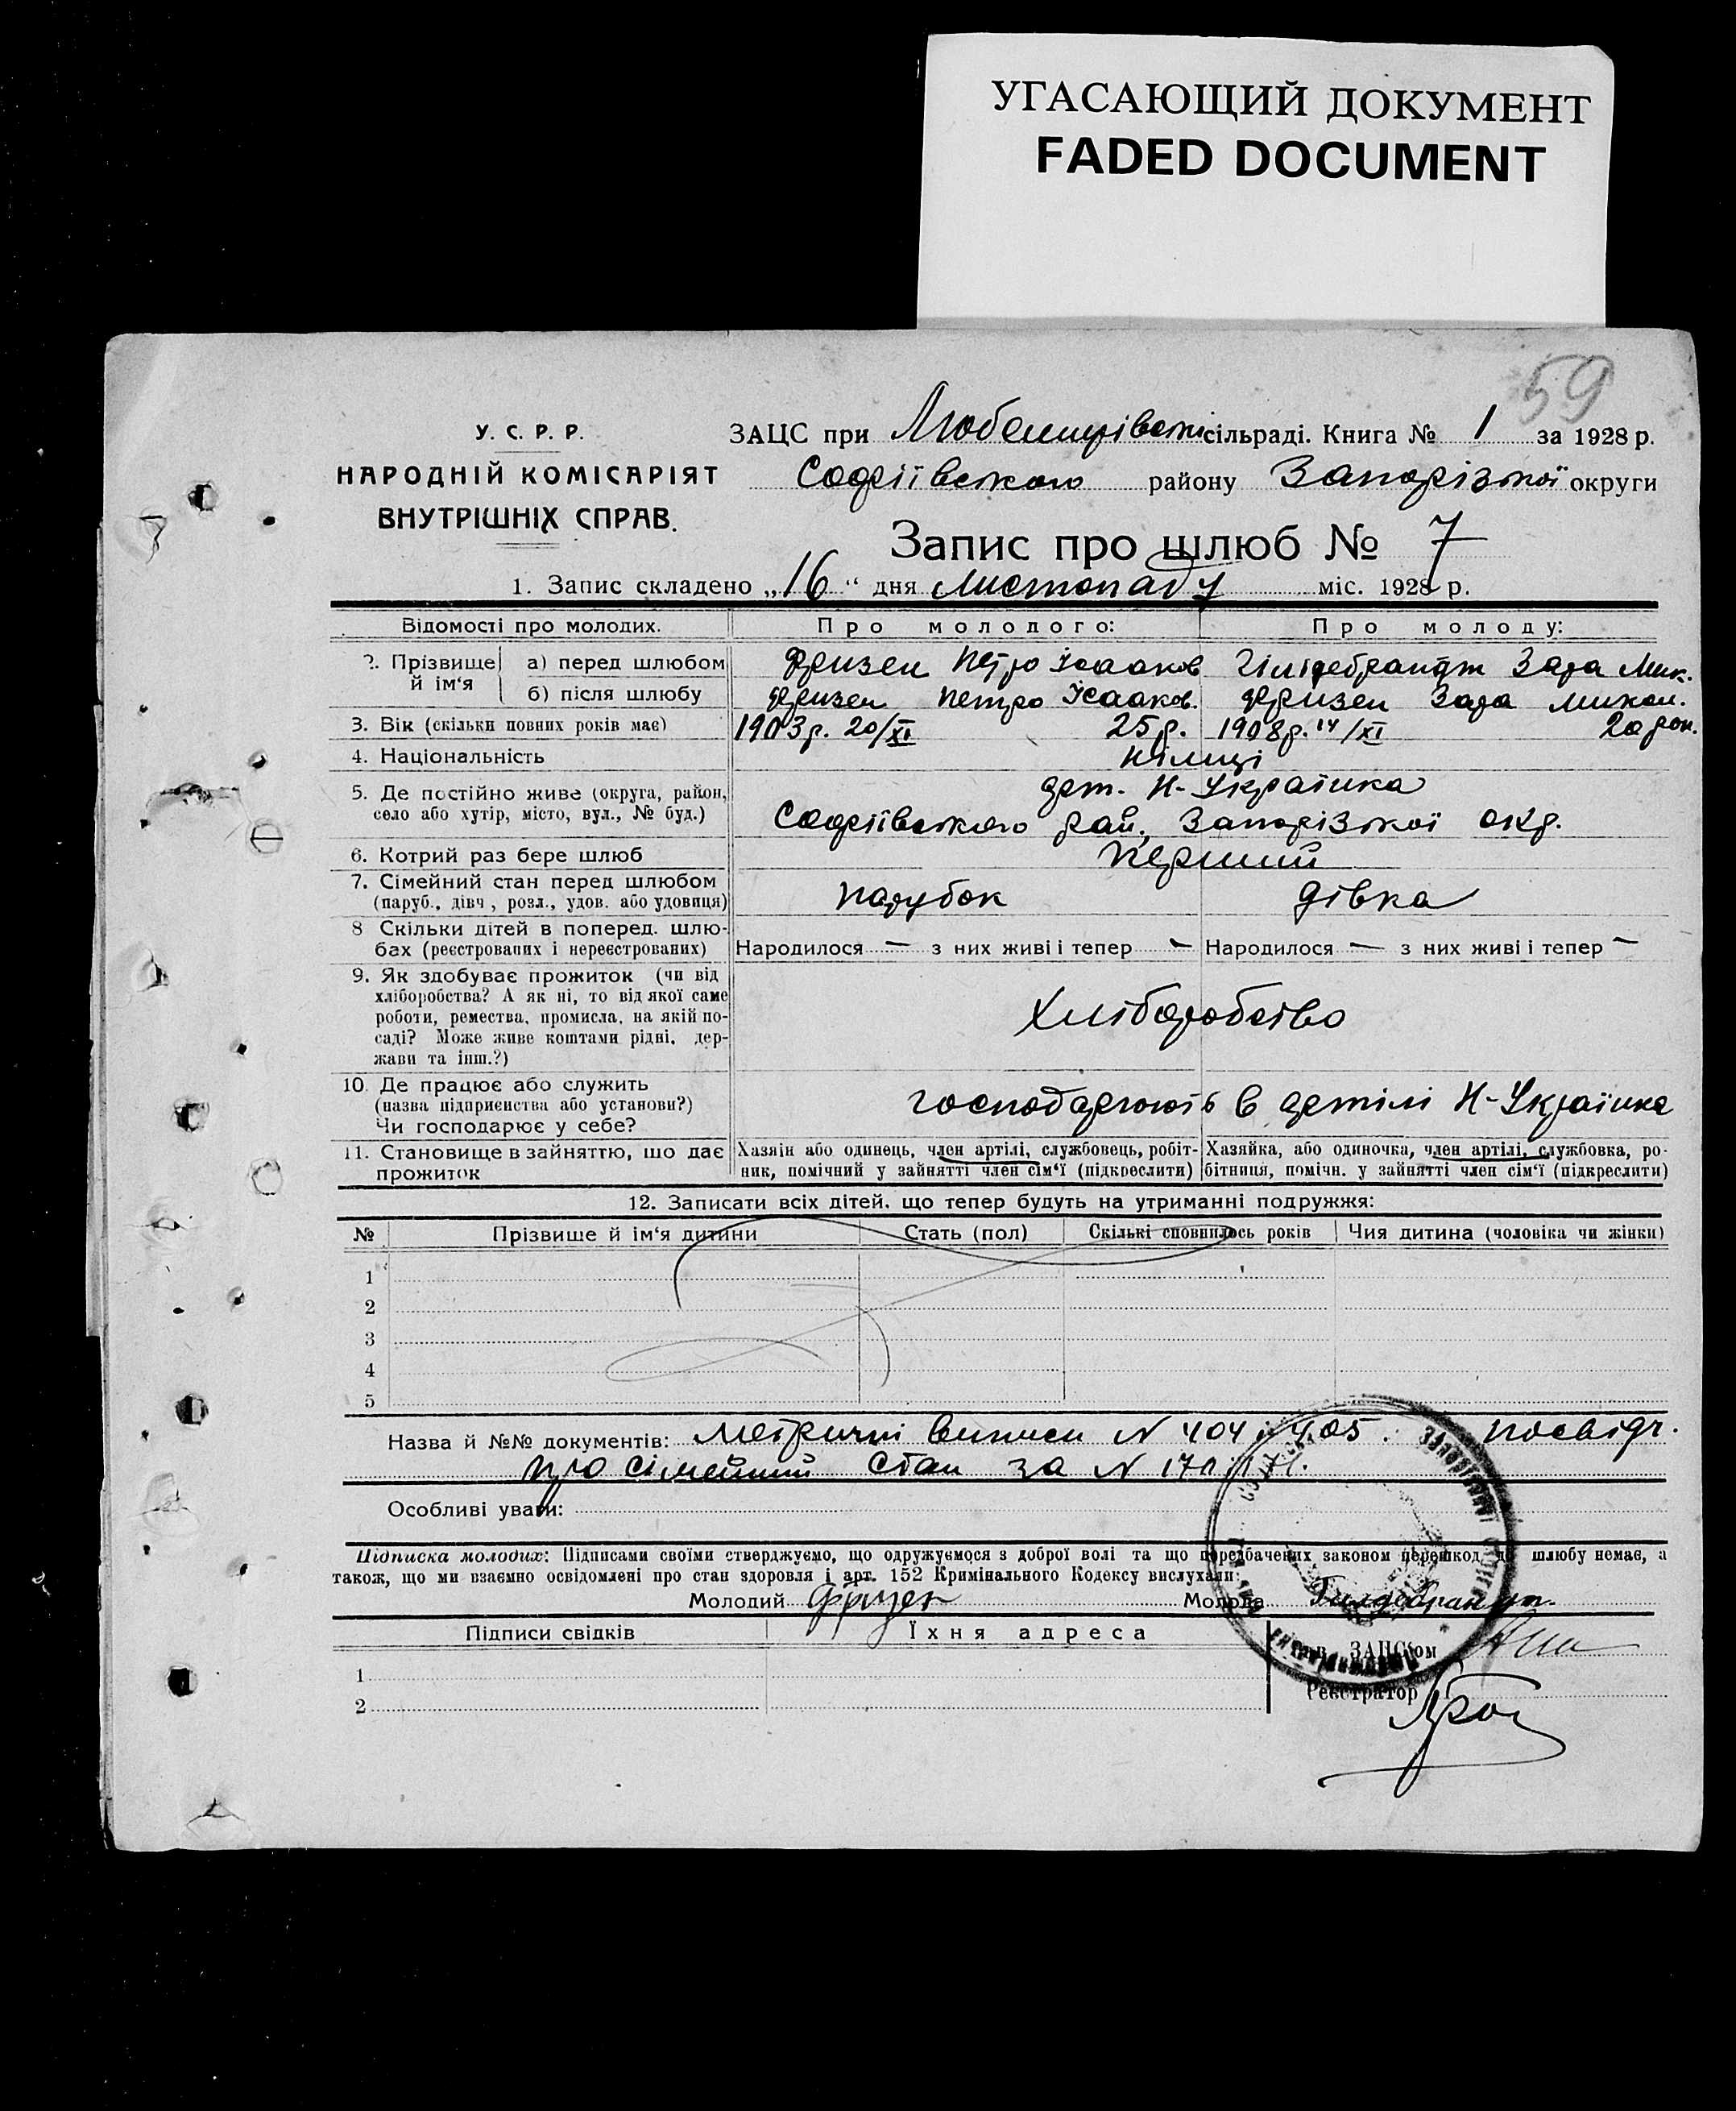 УГАСАЮЩИЙ ДОКУМЕНТ
FADED DOCUMENT
59
У. С. Р. Р.
НАРОДНІЙ КОМІСАРІЯТ
ВНУТРІШНІХ СПРАВ.
ЗАЦС при сільраді. Книга № 1 за 1928 р.
Софіївського району Запорізької округи
Запис про шлюб № 7
1. Запис складено „16“ дня Листопаду міс. 1928 р.
Відомості про молодих. Про молодого: Про молоду:
2. Прізвище й ім‘я
а) перед шлюбом Фризен Петро Ісааков Гільдебрандт Зара Мик.
б) після шлюбу Фризен Петро Ісааков. Фризен Зара Микол.
3. Вік (скільки повних років має) 1903р. 20/XI 25р. 1908р. 14/XI 20 рок.
4. Національність Німці
5. Де постійно живе (округа, район, арт. Н-Українка
село або хутір, місто, вул., № буд.) Софіївського рай, Запорізької окр.
6. Котрий раз бере шлюб Перший
7. Сімейний стан перед шлюбом
(паруб., дівч., розл., удов. або удовиця) парубок дівка
8 Скільки дітей в поперед. шлю-
бах (реєстрованих і нереєстрованих) Народилося — з них живі і тепер — Народилося — з них живі і тепер —
9. Як здобуває прожиток (чи від
хліборобства? А як ні, то від якої саме
роботи, ремества, промисла, на якій по-
саді? Може живе коштами рідні, дер-
жави та інш.?)
Хліборобство
10. Де працює або служить
(назва підприємства або установи?)
Чи господарює у себе?
господарюють в артілі Н-Українка
11. Становище в зайняттю, що дає
прожиток
Хазяїн або одинець, член артілі, службовець, робіт-
ник, помічний у зайнятті член сім‘ї (підкреслити)
Хазяйка, або одиночка, член артілі, службовка, ро-
бітниця, помічн. у зайнятті член сім‘ї (підкреслити)
12. Записати всіх дітей, що тепер будуть на утриманні подружжя:
№ Прізвище й ім‘я дитини Стать (пол) Скількі сповнилось років Чия дитина (чоловіка чи жінки)
1
2
3
4
5
Назва й №№ документів: Метричні виписи N 404 і 405. посвідч.
про сімейний стан за N
Особливі уваги:
Підписка молодих: Підписами своїми стверджуємо, що одружуємося з доброї волі та що передбачених законом перешкод до шлюбу немає, а
також, що ми взаємно освідомлені про стан здоровля і арт. 152 Кримінального Кодексу вислухали:
Молодий Фризен Молода Гильдебрандт.
Підписи свідків Їхня адреса
Зав. ЗАЦС‘ом
1
Реєстратор
2